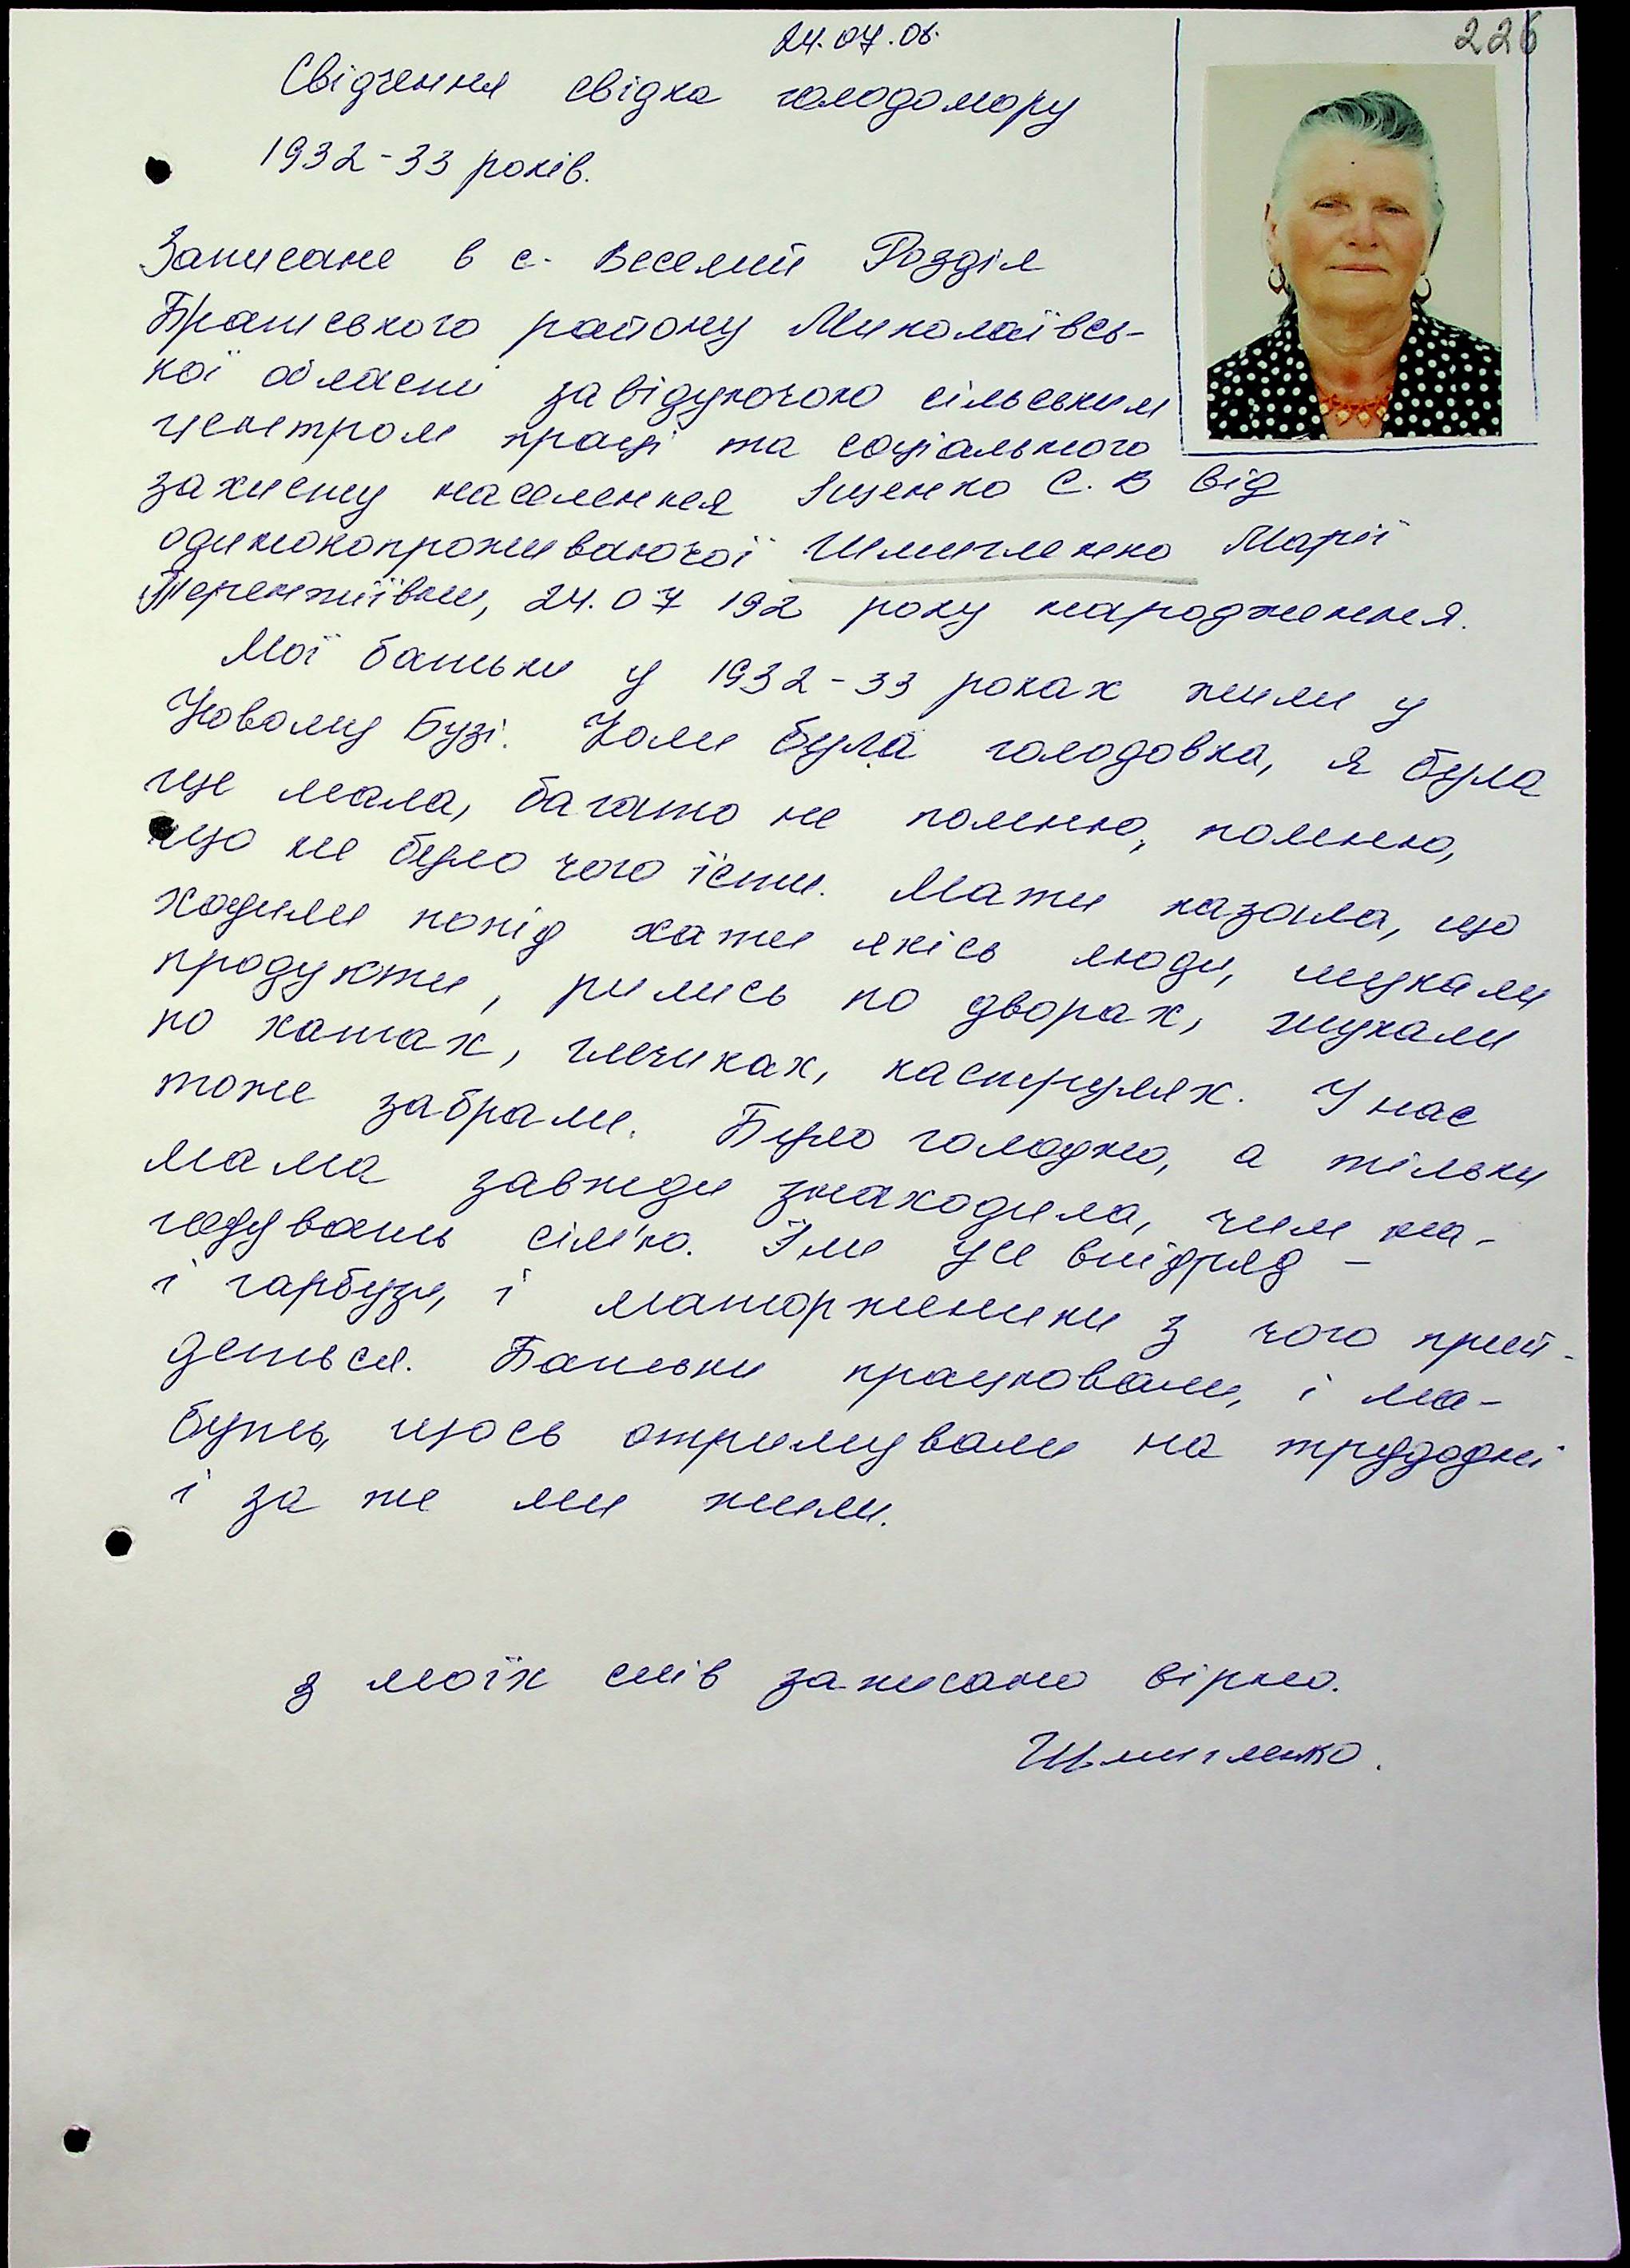 226
24.07.06.
Свідчення свідка голодомору
1932-33 років.
Записане в с. Веселий Розділ
Братського району Миколаївсь-
кої області завідуючою сільським
центром праці та соціального
захисту населення Іщенко С. В від
одинокопроживаючої Шмигленко Марії
Терентіївни, 24.07 192 року народження.
Мої батьки у 1932-33 роках жили у
Новому Бузі. Коли була голодовка, я була
ще мала, багато не помню, помню,
що не було чого їсти. Мати казала, що
ходили попід хати якісь люди, шукали
продукти, рились по дворах, шукали
по хатах, глечиках, каструлях. У нас
тоже забрали. Було голодно, а тільки
мама завжди знаходила, чим на-
годувать сім'ю. Їли усе впідряд -
і гарбузи, і маторженики з чого прий-
деться. Батьки працювали, і ма-
буть, щось отримували на трудодні
і за те ми жили.
З моїх слів записано вірно.
Шмигленко.